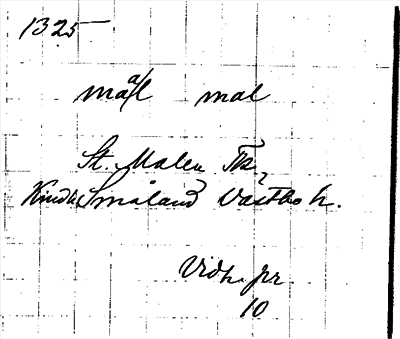 1325
maᵃ/l mal
St. Malen Tk.,
Kindh. Småland Västbo h.
Vidh. pr.
10